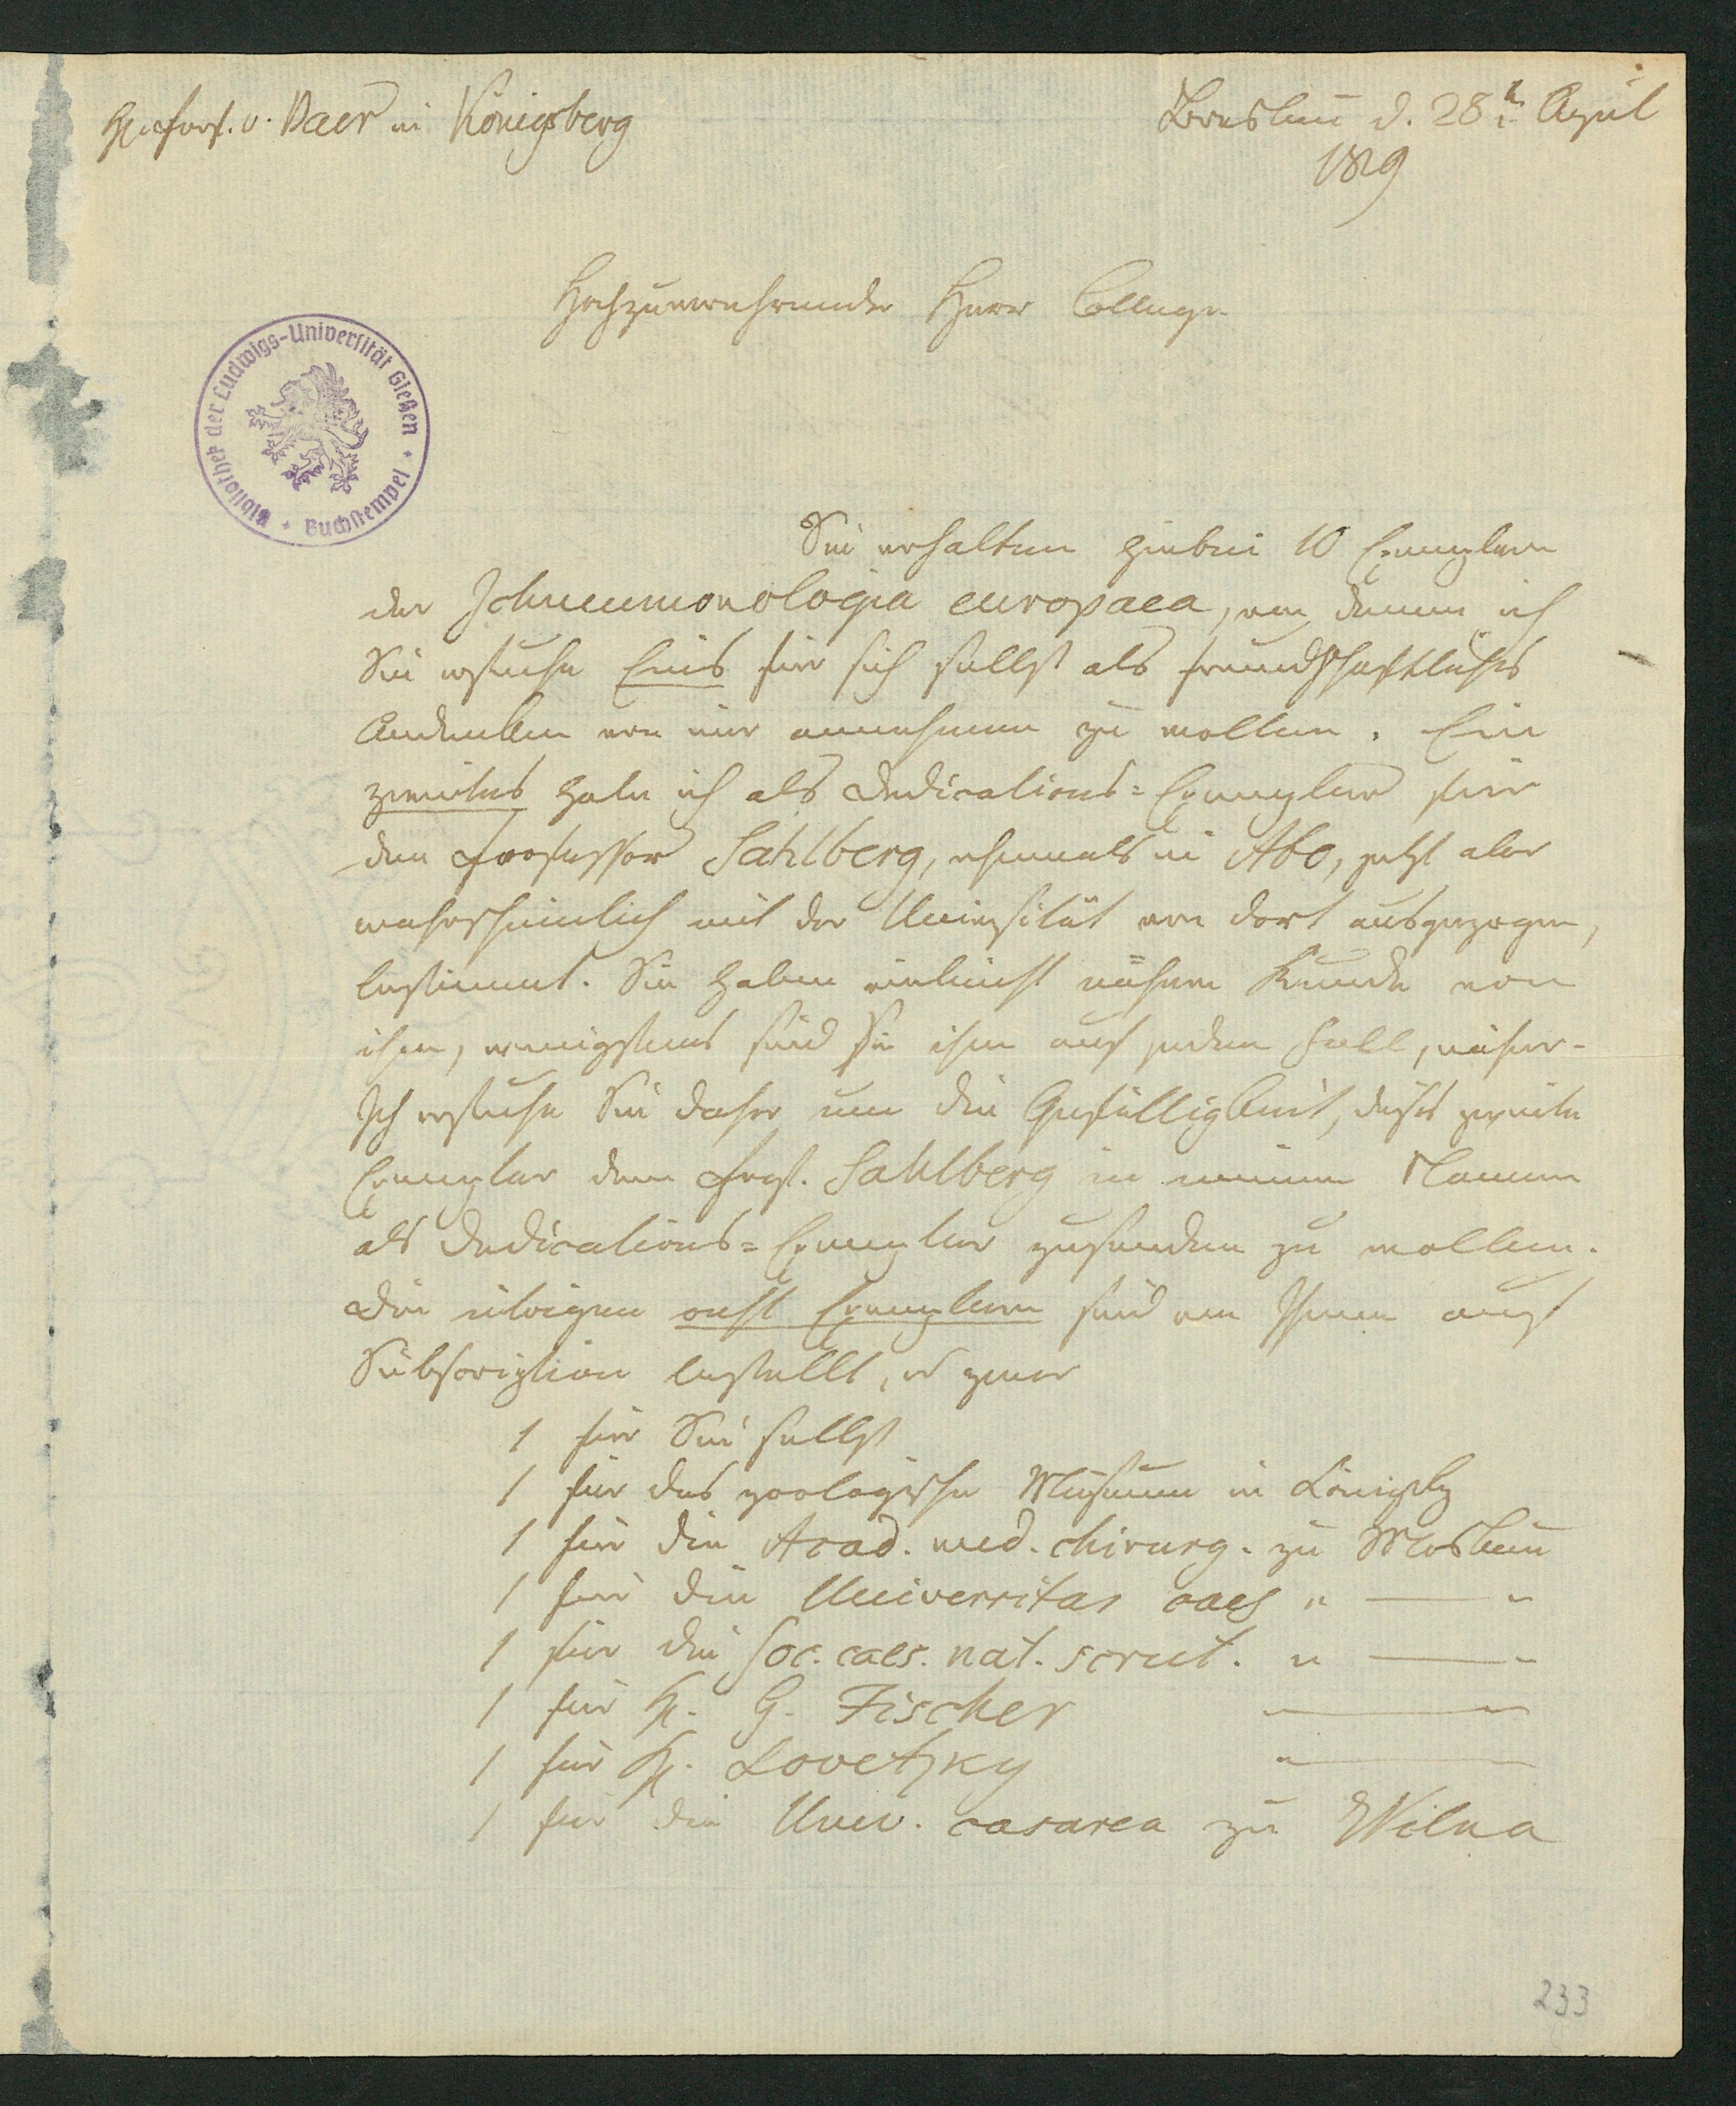 H Prof. v. Baer in Königsberg
Breslau d. 28t April
1829
Hochzuverehrender Herr College
Bibliothek der Ludwigs-Universität Gießen * Buchstempel *
Sie erhalten hiebei 10 Exemplare
der Ichneumonologia europaea, von denen ich
Sie ersuche Eins für sich selbst als freundschaftliches
Andenken von mir annehmen zu wollen. Ein
zweites habe ich als Dedications=Exemplar für
den Professor Sahlberg, ehemals in Abo, jetzt aber
wahrscheinlich mit der Universität von dort ausgezogen,
bestimmt. Sie haben vielleicht nähere Kunde von
ihm, wenigstens sind Sie ihm auf jeden Fall, näher.
Ich ersuche Sie daher um die Gefälligkeit, dieses zweite
Exemplar dem Prof. Sahlberg in meinem Namen
als Dedications=Exemplar zusenden zu wollen.
Die übrigen acht Exemplare sind von Ihnen auf
Subscription bestellt, u zwar
1 für Sie selbst
1 für das zoologische Museum in Königsbg
1 für die Acad. med. chirurg. zu Moskau
1 für die Universitas caes " — "
1 für die Soc. caes. nat. scrut. " — "
1 für H. G. Fischer " — "
1 für H. Lovetzky " —
1 für die Univ. casarea zu Wilna
233